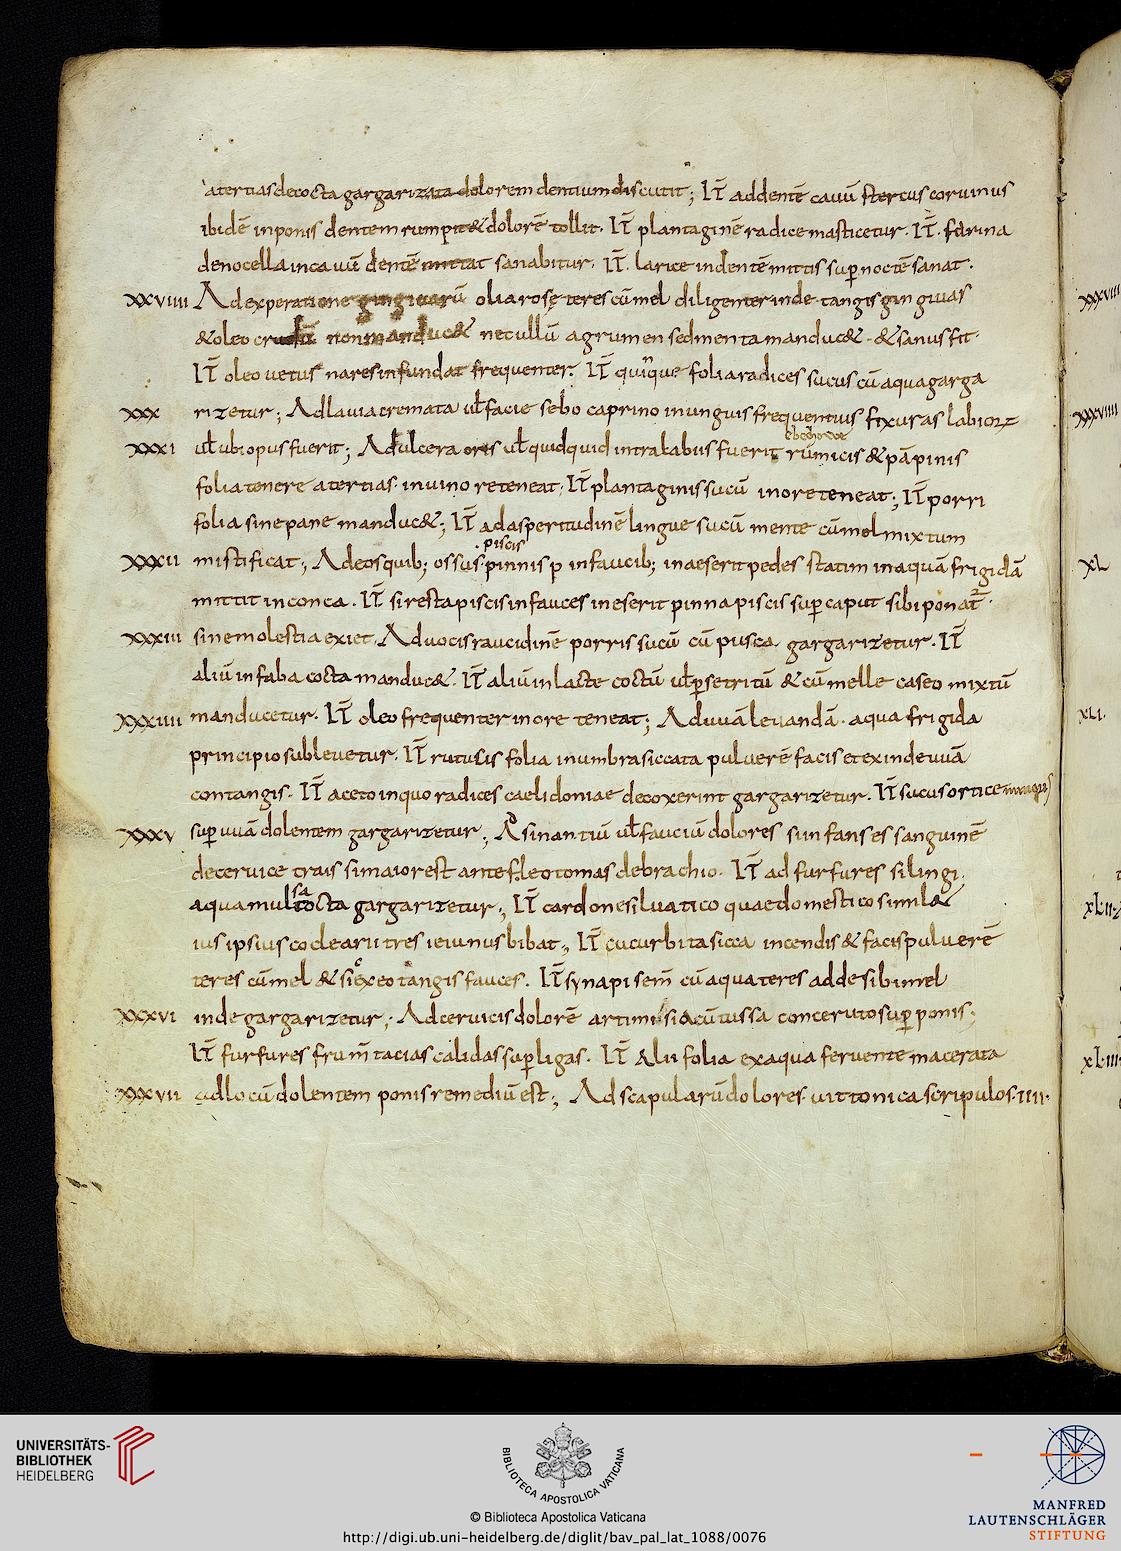 atertias decocta gargarizata dolorem dentium discutit; It̄ addentē cauū stercus coruinus
ibidē inponis dentem rumpit & dolorē tollit. It̄ plantaginē radice masticetur. It̄. farina
denocella incauū dentē mittat sanabitur. It̄. larice indentē mittis sup̄ noctē sanat.
xxviiii Adexperatione gingiuarū olia rosę teres cū mel diligenter inde tangis gingiuas
& oleo crudū non manduc& nec ullū agrumen sedmenta manduc& . & sanus fit.
It̄ oleo uetus nares infundat frequenter. It̄ quinque folia radices sucus cū aqua garga
xxx rizetur; Adlauia cremata ul̄ facie sebo caprino inunguis frequentius fixuras labioꝝ
xxxi ul̄ ubi opus fuerit; Adulcera oris ul̄ quidquid intra labiis fuerit rumicis & pāpinis
folia tenere atertias in uino reteneat; It̄ plantaginis sucū in ore teneat; It̄ porri
folia sine pane manduc&; It̄ ad asperitudinē lingue sucū mente cū mel mixtum
piscis
xxxii mistificat; Adeos quib; ossus pinnis p̄ in faucib; inaeserit pedes statim in aquā frigidā
mittit in conca. It̄ si resta piscis in fauces ineserit pinna piscis sup̄ caput sibi ponat.
xxxiii sine molestia exiet. Aduocis raucidinē porris sucū cū pusca gargarizetur. It̄
aliū in faba cocta manduc&. It̄ aliū in lacte coctū ul̄ p̄ se tritū & cū melle caseo mixtū
xxxiiii manducetur. It̄ oleo frequenter in ore teneat; Aduuā leuandā. aqua frigida
principio subleuetur. It̄ rutulis folia inumbra siccata puluerē facis et exinde uuā
contangis. It̄ aceto in quo radices caelidoniae decoxerint gargarizetur. It̄ sucus ortice
xxxv sup̄ uuā dolentem gargarizetur; Asinantiū ul̄ fauciū dolores si infans es sanguinē
deceruice trais si maior est ante fleotomas de brachio. It̄ ad furfures silingi.
sa
aqua mul tocta gargarizetur; It̄ cardone siluatico quae domestico simil&
ius ipsius coclearii tres ieiunus bibat; It̄ cucurbita sicca incendis & facis puluerē
teres cū mel & sic exeo tangis fauces. It̄ synapi sem̄ cū aqua teres adde sibi mel
xxxvi inde gargarizetur; Adceruicis dolorē artimisia cū tussa con ceruto sup̄ ponis;
It̄ furfures frum̄tacias calidas sup̄ ligas. It̄ Alii folia ex aqua feruente macerata
xxxvii ad locū dolentem ponis remediū est; Adscapularū dolores uittonica scripulos. IIII.
xxxviii
xxxviiii
xl
xli.
xlii
xliii
UNIVERSITÄTS-
BIBLIOTHEK
HEIDELBERG
BIBLIOTECA APOSTOLICA VATICANA
© Biblioteca Apostolica Vaticana
http://digi.ub.uni-heidelberg.de/diglit/bav_pal_lat_1088/0076
MANFRED
LAUTENSCHLÄGER
STIFTUNG